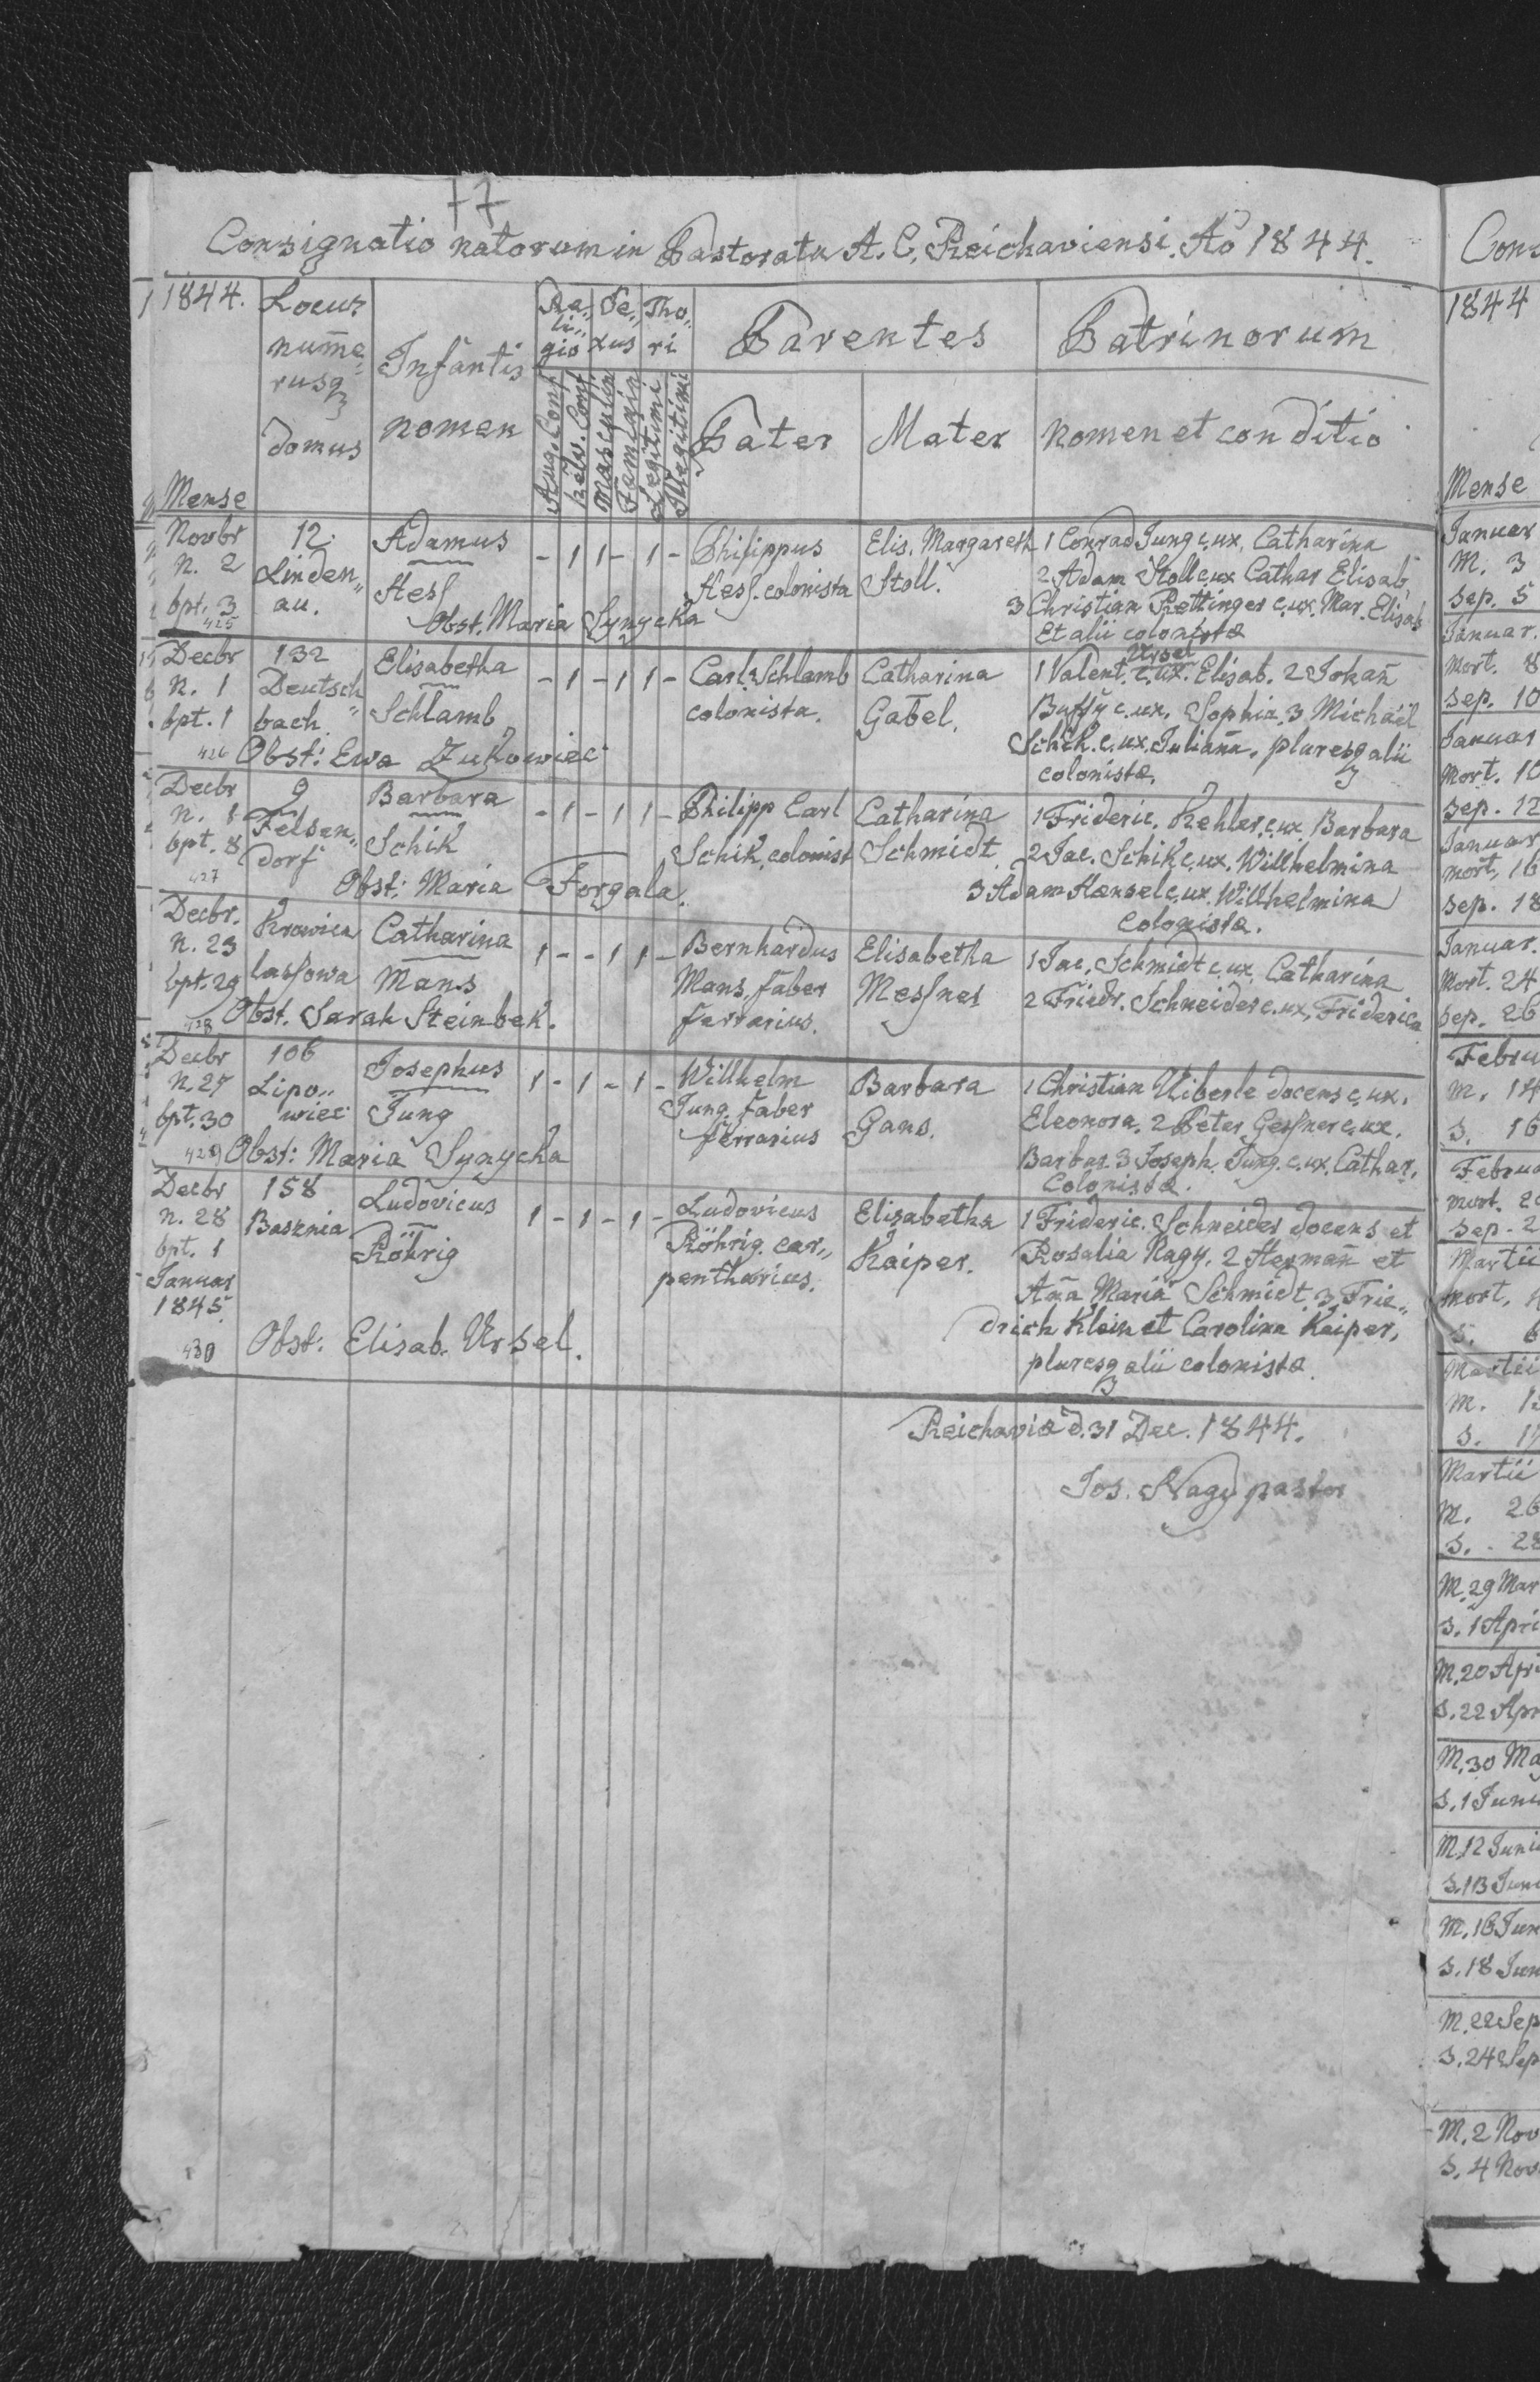 77
Consignatio natorum in Pastoratu A. C. Reichaviensi. Aõ 1844.
1844. Locus numme= rusq domus
Infantis nomen
Re„ li„ gio
Se„ xus
Tho„ ri
Parentes
Patrinorum
Mense
Aug. Conf.
Helv. Conf.
Masculin
Feminin
Legitimi
Illegitimi
Pater
Mater
nomen et conditio
Novbr 12. Adamus - 1 1 - 1 - Philippus Elis. Margareth 1 Conrad Jung c. ux. Catharina
n. 2 Linden„ Hess Hess. colonista Stoll. 2 Adam Stoll c. ux Cathar Elisab
bpt. 3 au. Obst. Maria Synycka 3 Christian Rettinger c. ux. Mar. Elisab
425 Et alii colonistæ
Decbr 132 Elisabetha - 1 - 1 1 - Carl. Schlamb Catharina 1 Valent. Ursel c. ux. Elisab. 2 Johañ
n. 1 Deutsch„ Schlamb colonista. Gabel.
bpt. 1 bach Sophia. 3 Michäel
426 Obst: Ewa Zukowiec Schik. c. ux. Juliaña. pluresq alii
colonistæ.
Decbr 9 Barbara - 1 - 1 1 - Philipp Carl Catharina 1 Frideric. Kehler c. ux. Barbara
n. 1 Felsen„ Schik Schik. colonist Schmidt 2 Jac. Schik c. ux. Willhelmina
bpt. 8 dorf Obst: Maria Forgala. 3 Adam Hænsel c. ux. Willhelmina
427 Colonistæ.
Decbr. Krowica Catharina 1 - - 1 1 - Bernhardus Elisabetha 1 Jac. Schmidt c. ux. Catharina
n. 23 lassowa Mans Mans. faber Messner 2 Friedr. Schneider c. ux. Friderica
bpt. 29 Obst. Sarah Steinbek. ferrarius.
428
Decbr 106 Josephus 1 - 1 - 1 - Willhelm Barbara 1 Christian Uiberle docens c. ux.
n. 27 Lipo„ Jung Jung. faber Gans. Eleonora. 2 Peter Gessner c. ux.
bpt. 30 wiec ferrarius Barbar. 3 Joseph. Jung. c. ux. Cathar.
429 Obst: Maria Synycka Colonistæ.
Decbr 158 Ludovicus 1 - 1 - 1 - Ludovicus Elisabetha 1 Frideric. Schneider docens et
n. 28 Basznia Röhrig Röhrig. car„ Kaiper. Rosalia Nagy. 2 Hermañ et
bpt. 1 pentharius. Aña Maria Schmidt 3 Frie„
Januar drich Klein et Carolina Kaiper,
1845. pluresq alii colonistæ.
430 Obst: Elisab. Ursel.
Reichaviæ d. 31 Dec. 1844.
Jos. Nagy pastor
1844
Mense
Januar
M. 3
Sep. 5
Januar.
Mort. 8
Sep. 10
Januar
Mort.
Sep. 12
Januar
mort. 16
Sep. 18
Januar.
Mort. 24
Sep. 26
M. 14
S. 16
mort.
Martii
mort.
S. 6
Martii
M.
S.
Martii
M. 26
S. 28
M. 29 Mar
S. 1 Apri
M. 20 Apr
S. 22 Apr
M. 30 Ma
S. 1 Juni
M. 12 Juni
S. 13 Juni
M. 16 Jun
S. 18 Jun
M. 22 Sep
S. 24 Sep
M. 2 Nov
S. 4 Nov